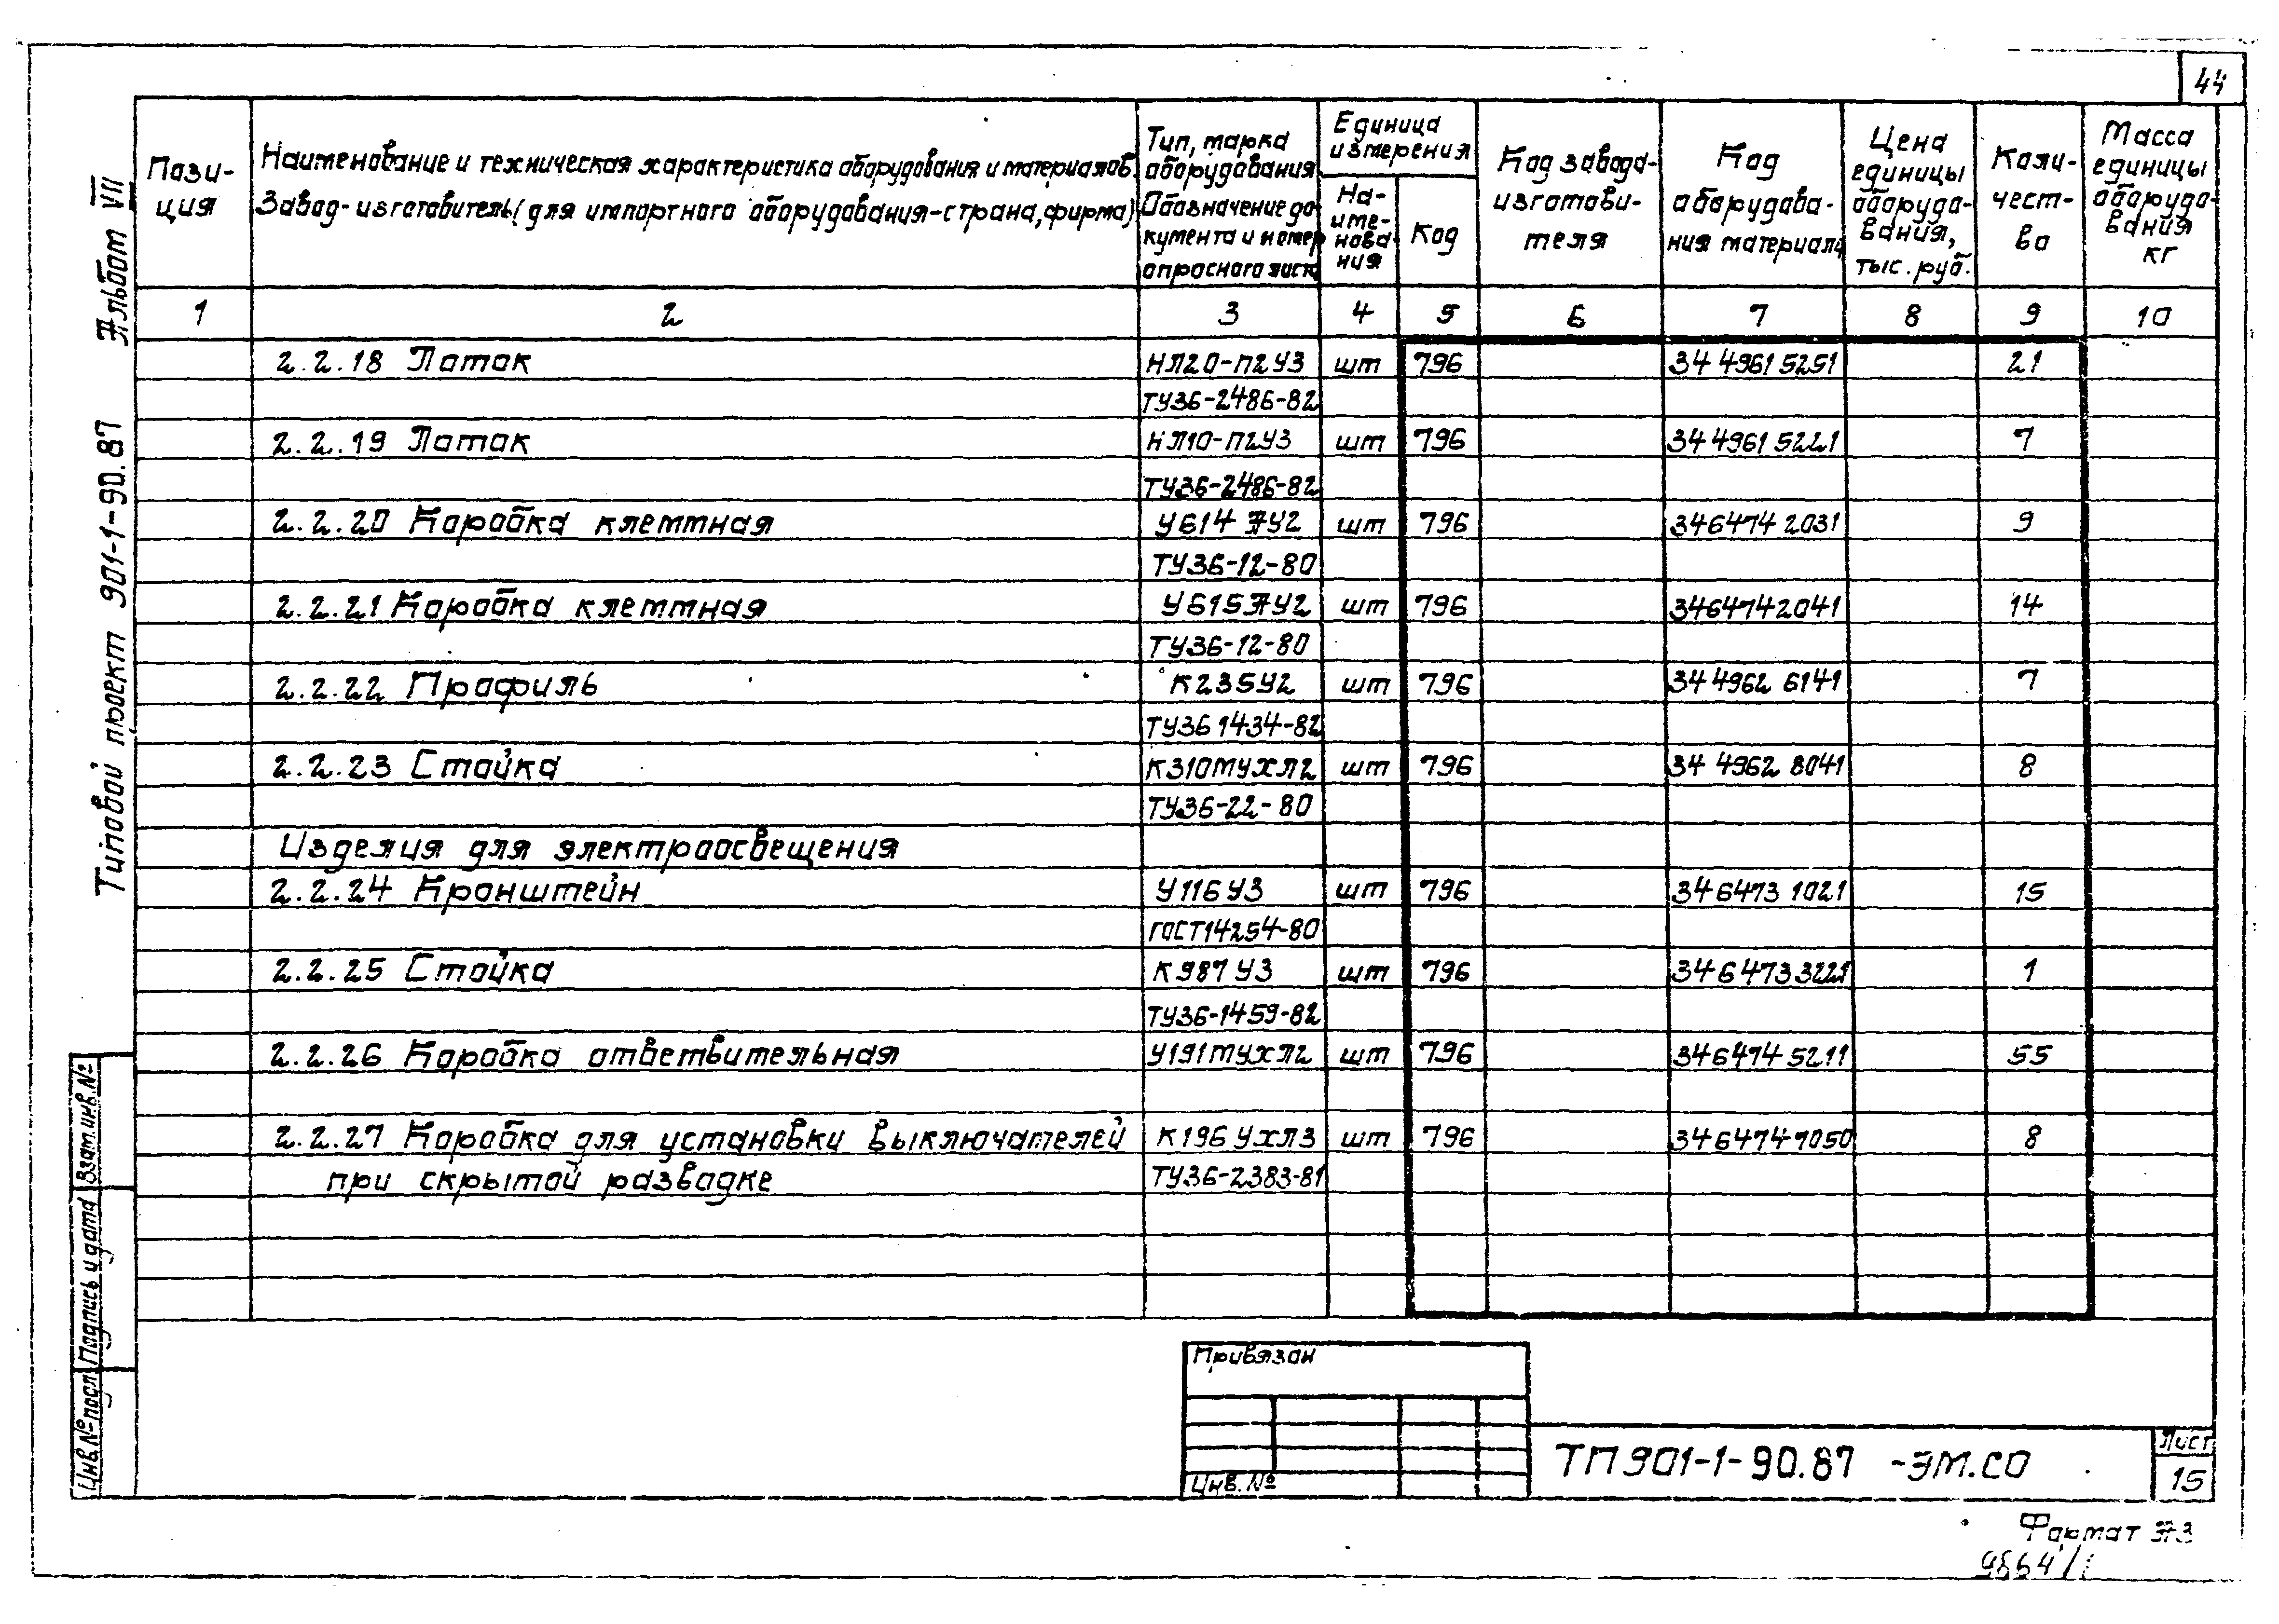 44
Альбом VII
Типовой проект 901-1-90.87
Пози-
ция
Наименование и техническая характеристика оборудования и материалов.
Завод-изготовитель (для импортного оборудования-страна, фирма)
Тип, марка
оборудования
Обозначение до-
кумента и номер
опросного листа
Единица
измерения
На-
име-
нова-
ния
Код
Код завода-
изготови-
теля
Код
оборудова-
ния материала
Цена
единицы
оборудо-
вания,
тыс. руб.
Коли-
чест-
во
Масса
единицы
оборудо-
вания
кг
1 2 3 4 5 6 7 8 9 10
2.2.18 Лоток НЛ20-П2У3 шт 796 34 4961 5251 21
ТУ36-2486-82
2.2.19 Лоток НЛ10-П2У3 шт 796 34 4961 5221 7
ТУ36-2486-82
2.2.20 Коробка клеммная У614 АУ2 шт 796 346474 2031 9
ТУ36-12-80
2.2.21 Коробка клеммная У615АУ2 шт 796 3464742041 14
ТУ36-12-80
2.2.22 Профиль К235У2 шт 796 34 4962 6141 7
ТУ36 1434-82
2.2.23 Стойка К310МУХЛ2 шт 796 34 4962 8041 8
ТУ36-22-80
Изделия для электроосвещения
2.2.24 Кронштейн У116У3 шт 796 346473 1021 15
ГОСТ14254-80
2.2.25 Стойка К987У3 шт 796 3464733221 1
ТУ36-1459-82
2.2.26 Коробка ответвительная У191МУХЛ2 шт 796 346474 5211 55
2.2.27 Коробка для установки выключателей К196 УХЛ3 шт 796 3464747050 8
при скрытой разводке ТУ36-2383-81
Взам.инв.№
Подпись и дата
Инв.№подл
Привязан
Инв.№
ТП901-1-90.87 -ЭМ.СО
Лист
15
Формат А3